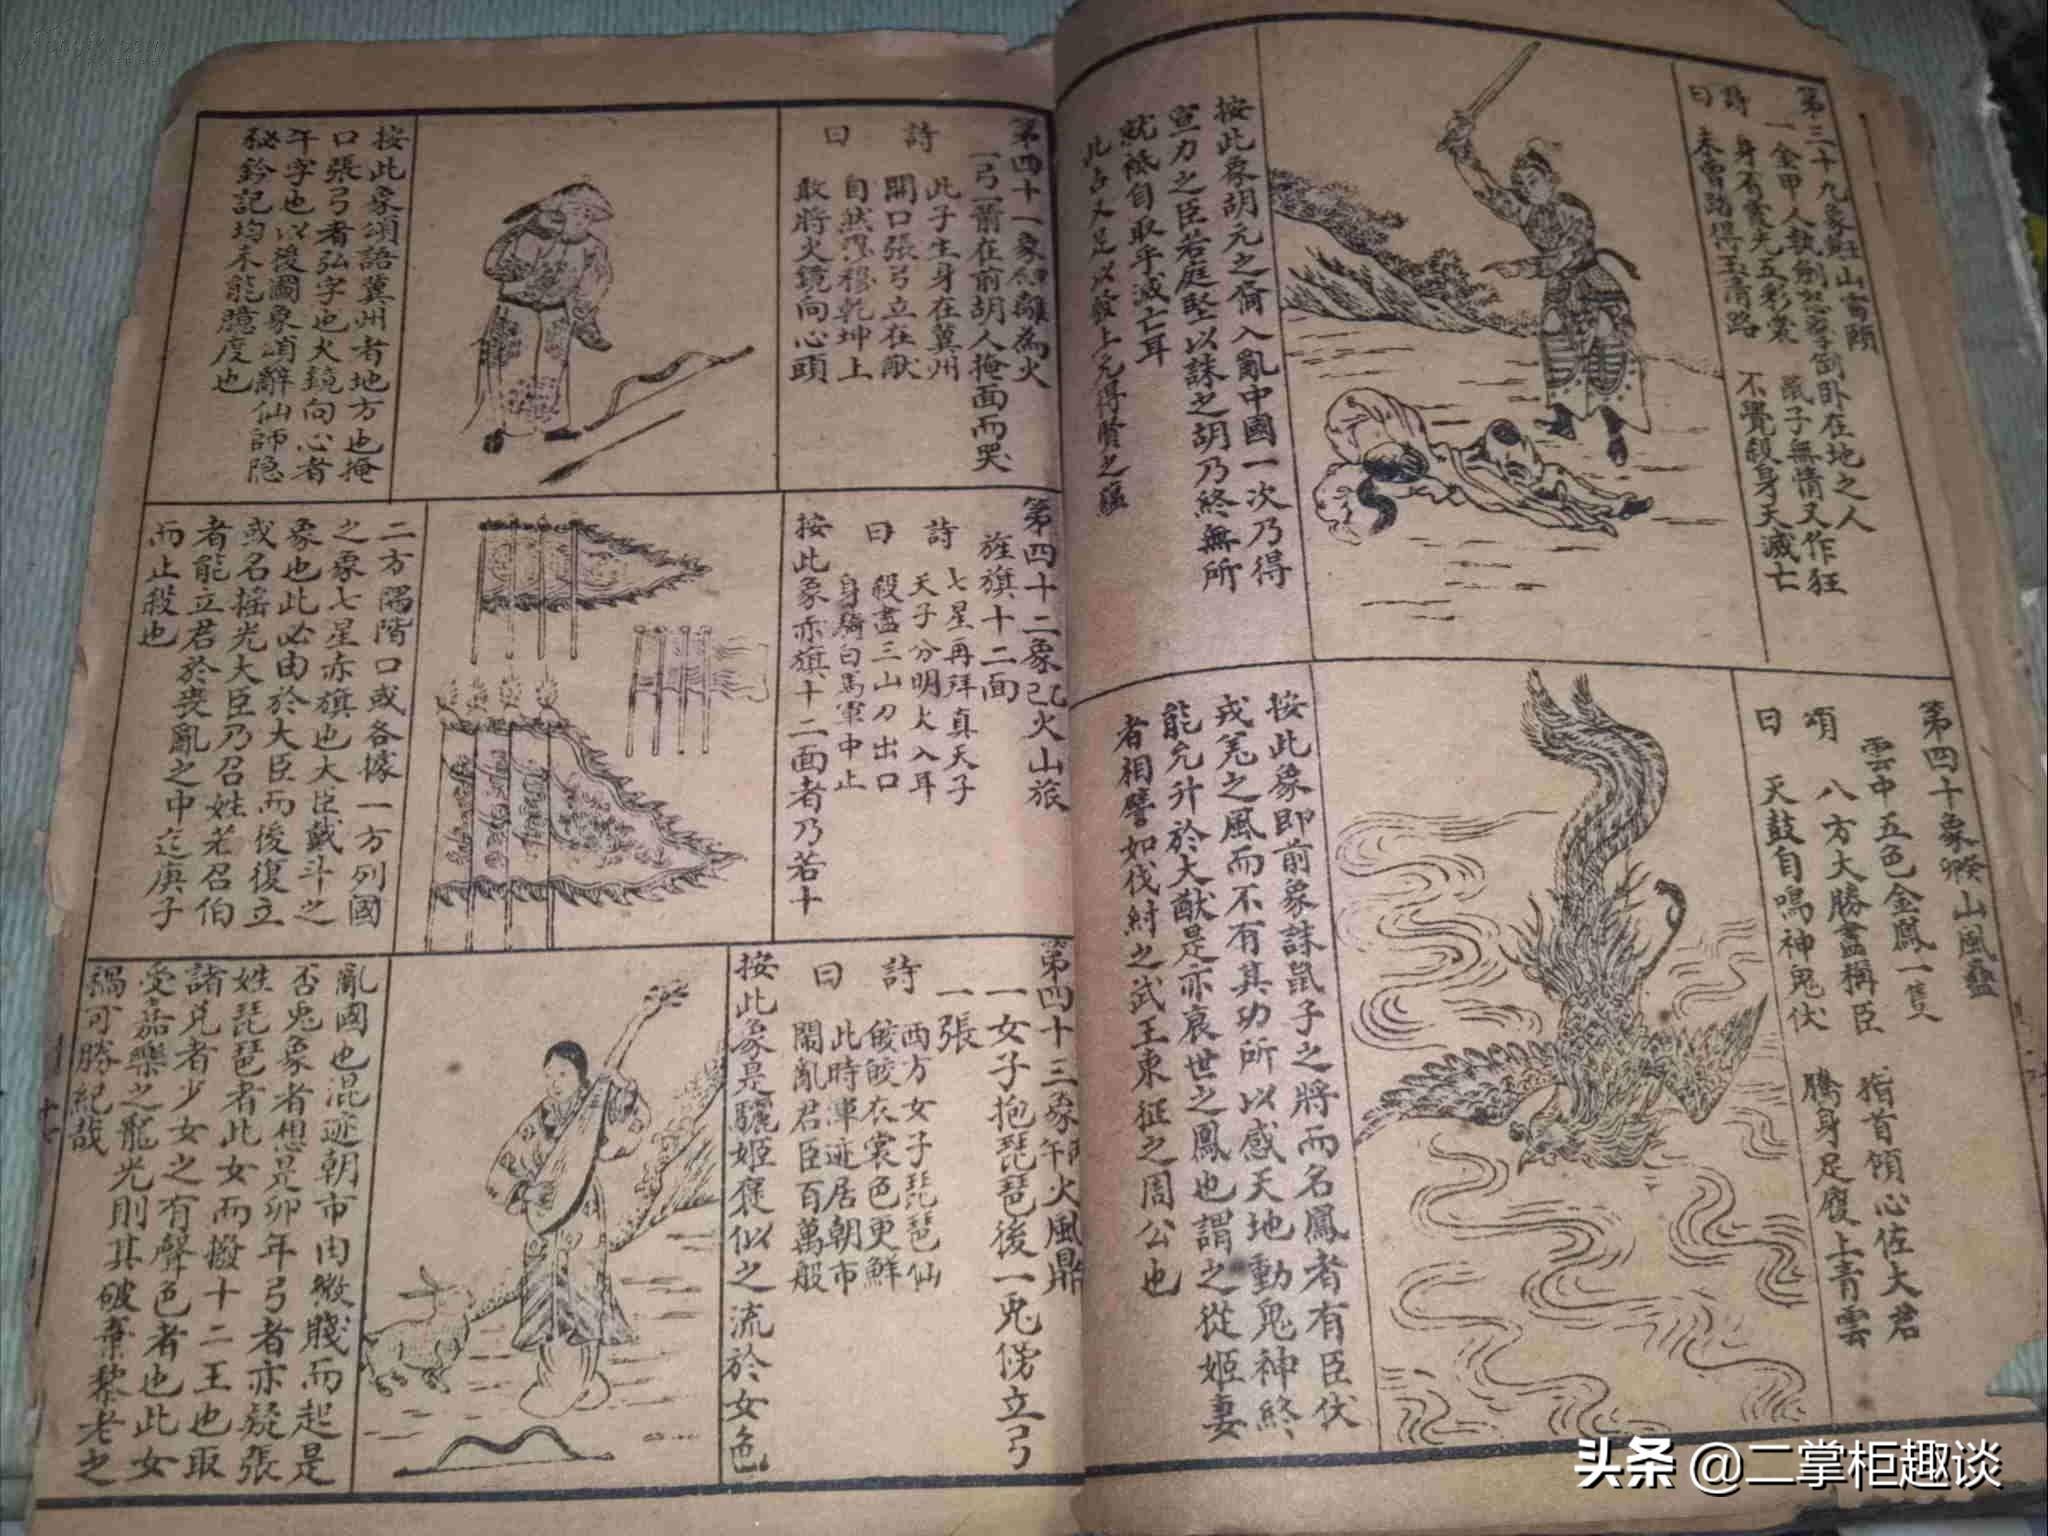 第三十九象
山雷頤
一金甲人執劍怒
子倒卧在地之人
詩
曰
身有霞光五彩裳
鼠子無情又作狂
未曾踏得玉清路
不覺殺身天滅亡
按此象胡元之裔入亂中國一次乃得
宣力之臣若庭堅以誅之胡乃終無所
就祗自取乎滅亡耳
此占又足以發上元得賢之蘊
第四十象
山風蠱
雲中五色金鳳一隻
頌
曰
八方大勝盡稱臣
指首領心佐大君
天鼓自鳴神鬼伏
騰身足履上青雲
按此象即前象誅鼠子之將而名鳳者有臣伏
戎羌之風而不有其功所以感天地動鬼神終
能允升於大猷是亦衰世之鳳也謂之從姬妻
者相譬如伐紂之武王東征之周公也
第四十一象
離為火
一弓一箭在前胡人掩面而哭
詩
曰
此子生身在冀州
開口張弓立在猷
自然穆穆乾坤上
敢將火鏡向心頭
按此象頌語冀州者地方也掩
口張弓者弘字也火鏡向心者
午字也以後圖象頌辭仙師隐
秘鈐記均未能臆度也
第四十二象己火山旅
旌旗十二面
詩
曰
七星再拜真天子
天子分明火入耳
殺盡三山刀出口
身騎白馬軍中止
按此象亦旗十二面者乃若十
二方隅階口或各據一方列國
之象七星赤旗也大臣戴斗之
象也此必由於大臣而後復立
或名摇光大臣乃召姓若召伯
者能立君於喪亂之中迄庚子
而止殺也
第四十三象
火風鼎
一女子抱琵琶後一兎傍立弓
一張
詩
曰
西方女子琵琶仙
皎皎衣裳色更鮮
此時渾迹居朝市
閙亂君臣百萬般
按此象是驪姬褒似之流於女色
亂國也混迹朝市由微賤而起是
否兎象者想是卯年弓者亦疑張
姓琵琶者此女而撥十二王也取
諸兌者少女之有聲色者也此女
受嘉樂之龍光則其破棄黎老之
禍可勝紀哉
头条 @二掌柜趣谈